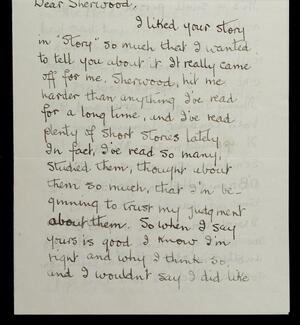 Dear Sherwood,
I liked your story
in "Story" so much that I wanted
to tell you about it. It really came
off for me, Sherwood, hit me
harder than anything I've read
for a long time, and I've read
plenty of short stories lately.
In fact, I've read so many,
studied them, thought about
them so much, that I'm be-
ginning to trust my judgment
about them. So when I say
yours is good I know I'm
right and why I think so
and I wouldn't say I did like